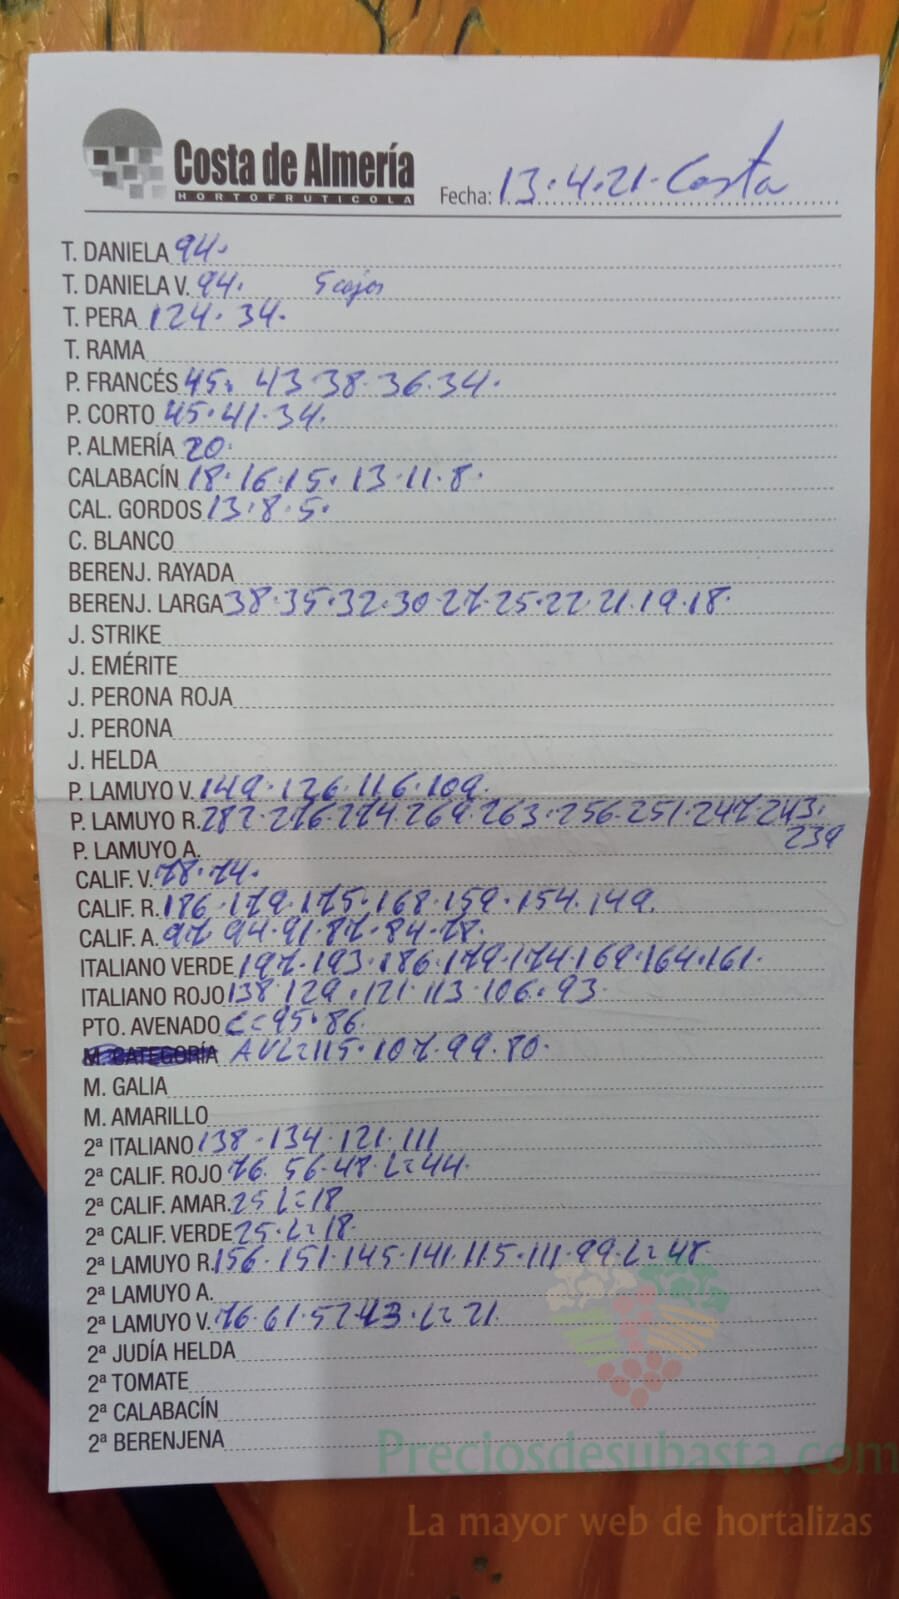 Costa de Almería
HORTOFRUTICOLA
Fecha: 13.4.21. Costa
T. DANIELA 94.
T. DANIELA V. 94. 5 cajas
T. PERA 124. 34.
T. RAMA
P. FRANCÉS 45. 43 38. 36. 34.
P. CORTO 45. 41. 34.
P. ALMERÍA 20.
CALABACÍN 18. 16. 15. 13. 11. 8.
CAL. GORDOS 13. 8. 5.
C. BLANCO
BERENJ. RAYADA
BERENJ. LARGA 38. 35. 32. 30. 27. 25. 22. 21. 19. 18.
J. STRIKE
J. EMÉRITE
J. PERONA ROJA
J. PERONA
J. HELDA
P. LAMUYO V. 149. 126. 116. 109.
P. LAMUYO R. 282. 276. 274. 269. 263. 256. 251. 247. 243.
239
P. LAMUYO A.
CALIF. V. 78. 74.
CALIF. R. 186. 179. 175. 168. 159. 154. 149.
CALIF. A. 97. 94. 91. 87. 84. 78.
ITALIANO VERDE 197. 193. 186. 179. 174. 169. 164. 161.
ITALIANO ROJO 138. 129. 121. 113. 106. 93.
PTO. AVENADO C= 95. 86.
M. CATEGORÍA AVL= 115. 107. 99. 80.
M. GALIA
M. AMARILLO
2ª ITALIANO 138. 134. 121. 111
2ª CALIF. ROJO 76. 56. 48. L= 44.
2ª CALIF. AMAR. 25 L= 18
2ª CALIF. VERDE 25. L= 18.
2ª LAMUYO R. 156. 151. 145. 141. 115. 111. 99. L= 48.
2ª LAMUYO A.
2ª LAMUYO V. 76. 61. 52 43. L= 21.
2ª JUDÍA HELDA
2ª TOMATE
2ª CALABACÍN
2ª BERENJENA
Preciosdesubasta.com
La mayor web de hortalizas